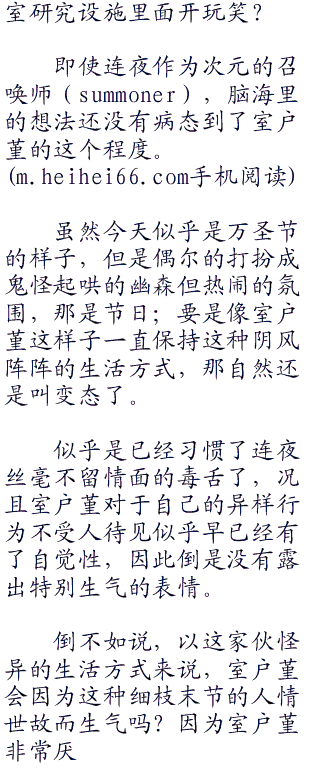 室研究设施里面开玩笑？
即使连夜作为次元的召
唤师（summoner），脑海里
的想法还没有病态到了室户
堇的这个程度。
(m.heihei66.com手机阅读)
虽然今天似乎是万圣节
的样子，但是偶尔的打扮成
鬼怪起哄的幽森但热闹的氛
围，那是节日；要是像室户
堇这样子一直保持这种阴风
阵阵的生活方式，那自然还
是叫变态了。
似乎是已经习惯了连夜
丝毫不留情面的毒舌了，况
且室户堇对于自己的异样行
为不受人待见似乎早已经有
了自觉性，因此倒是没有露
出特别生气的表情。
倒不如说，以这家伙怪
异的生活方式来说，室户堇
会因为这种细枝末节的人情
世故而生气吗？因为室户堇
非常厌